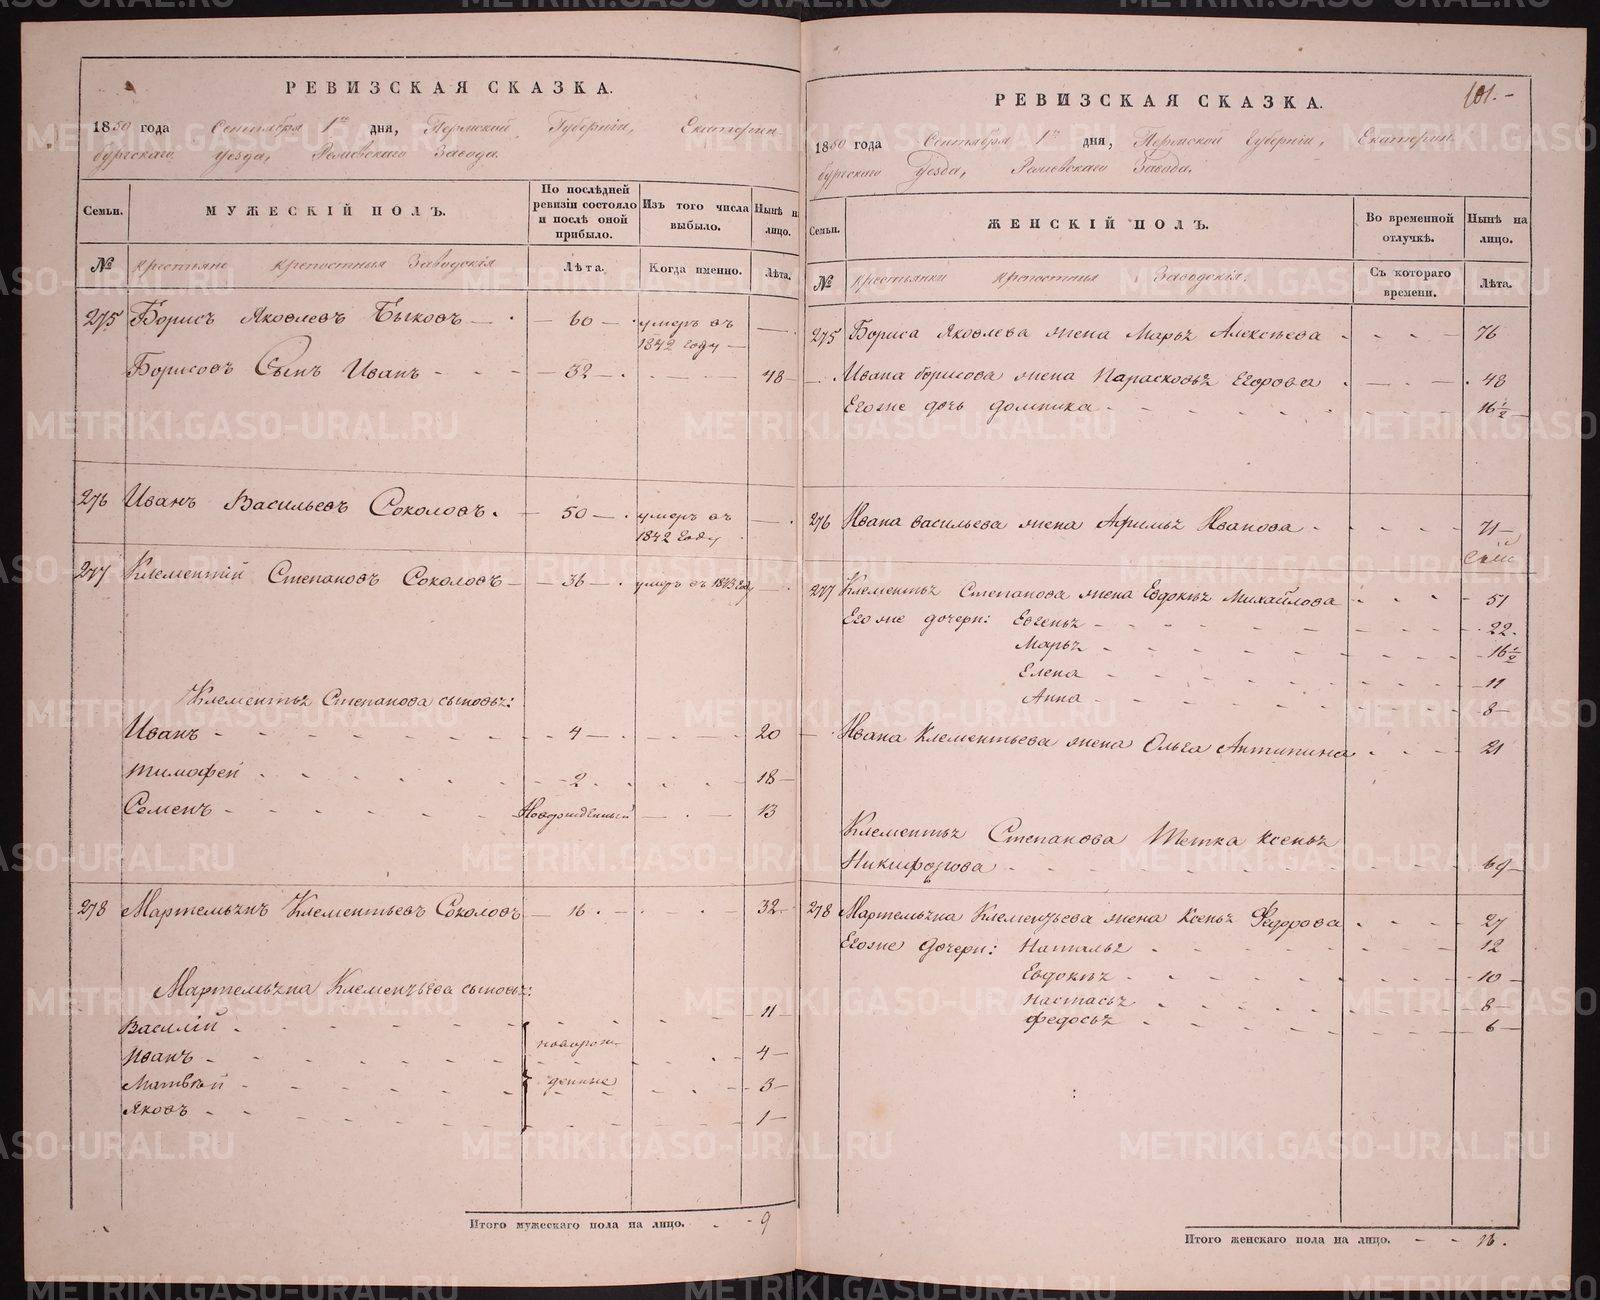 РЕВИЗСКАЯ СКАЗКА.
1850 года Сентября 1го дня, Пермской Губерніи, Екатерин-
бургскаго уезда, Ревдевскаго Завода.
Семьи. МУЖЕСКІЙ ПОЛЪ. По послѣдней ревизіи состояло и послѣ оной прибыло. Изъ того числа выбыло. Нынѣ на лицо.
№ крестьяне крепостныя Заводскія Лѣта. Когда именно. Лѣта.
275 Борисъ Яковлевъ Быковъ — 60 — умеръ въ 1842 году —
Борисовъ Сынъ Иванъ - - - 32 — 48 —
276 Иванъ Васильевъ Соколовъ. — 50 — умеръ въ 1842 году
277 Клементій Степановъ Соколовъ — 36 — умеръ въ 1843 году —
Клементья Степанова сыновья:
Иванъ - - - 4 — 20
Тимофей - - - 2 18 —
Семенъ - - - Новорожденный — 13
278 Мартемьянъ Клементьевъ Соколовъ — 16. — 32 —
Мартемьяна Клементьева сыновья:
Василій - - - 11
Иванъ - - - новорож- 4 —
Матвей - - - денные 3 —
Яковъ - - - 1 —
Итого мужескаго пола на лицо. - - 9
101. —
РЕВИЗСКАЯ СКАЗКА.
1850 года Сентября 1го дня, Пермской Губерніи, Екатерин-
бургскаго Уезда, Ревдевскаго Завода.
Семьи. ЖЕНСКІЙ ПОЛЪ. Во временной отлучкѣ. Нынѣ на лицо.
№ крестьянки крепостныя Заводскія. Съ котораго времени. Лѣта.
275 Бориса Яковлева жена Марья Алексеева - - - 76
Ивана борисова жена Парасковья Егорова - - - 48
Егоже дочь домника - - - 16½ —
276 Ивана васильева жена Афимья Иванова - - - 71 —
277 Клементья Степанова жена Евдокья Михайлова - - - 51
Егоже дочери: Евгенья - - - 22.
Марья - - - 16½
Елена - - - 11
Анна - - - 8 —
Ивана Клементьева жена Ольга Антипина - - - 21
Клементья Степанова Тетка Ксенья
Никифорова - - - 69 —
278 Мартемьяна Клементьева жена Ксенья Федорова - - - 27
Егоже дочери: Наталья - - - 12
Евдокья - - - 10 —
Настасья - - - 8 —
Федосья - - - 6 —
Итого женскаго пола на лицо. - - 16.
METRIKI.GASO-URAL.RU